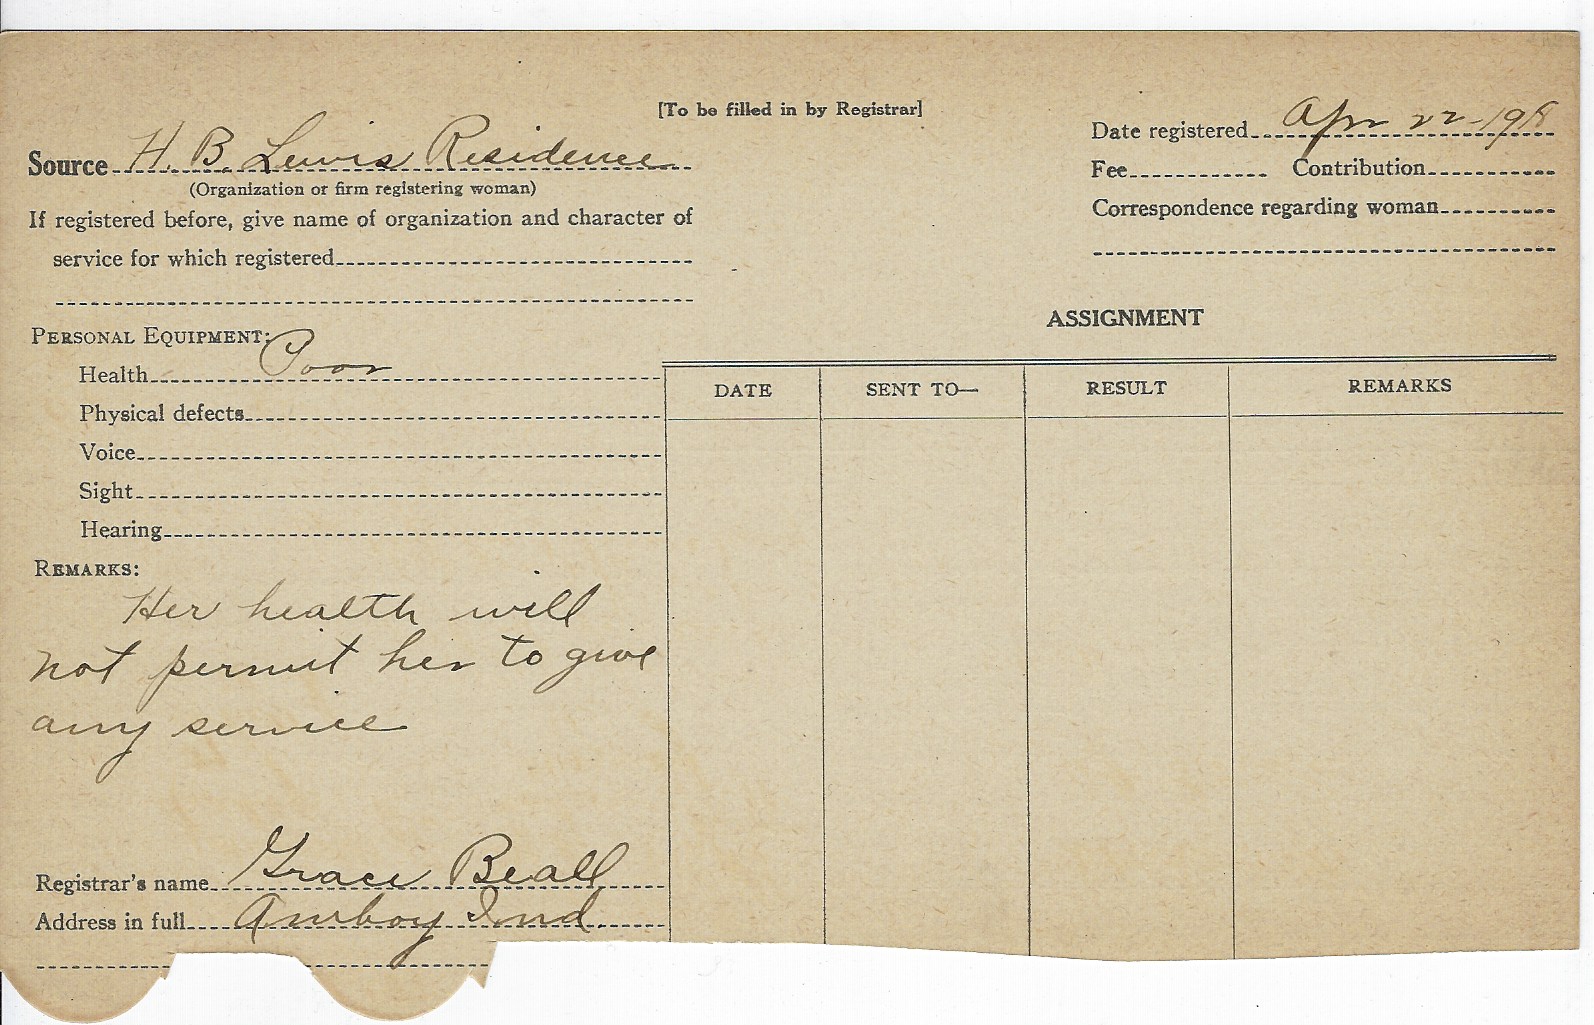 [To be filled in by Registrar]
Source H. B. Lewis Residence
(Organization or firm registering woman)
If registered before, give name of organization and character of
service for which registered
Date registered Apr 22-1918
Fee Contribution
Correspondence regarding woman
PERSONAL EQUIPMENT:
Health Poor
Physical defects
Voice
Sight
Hearing
REMARKS:
Her health will
not permit her to give
any service
Registrar's name Grace Beall
Address in full Amboy Ind.
ASSIGNMENT
DATE SENT TO— RESULT REMARKS